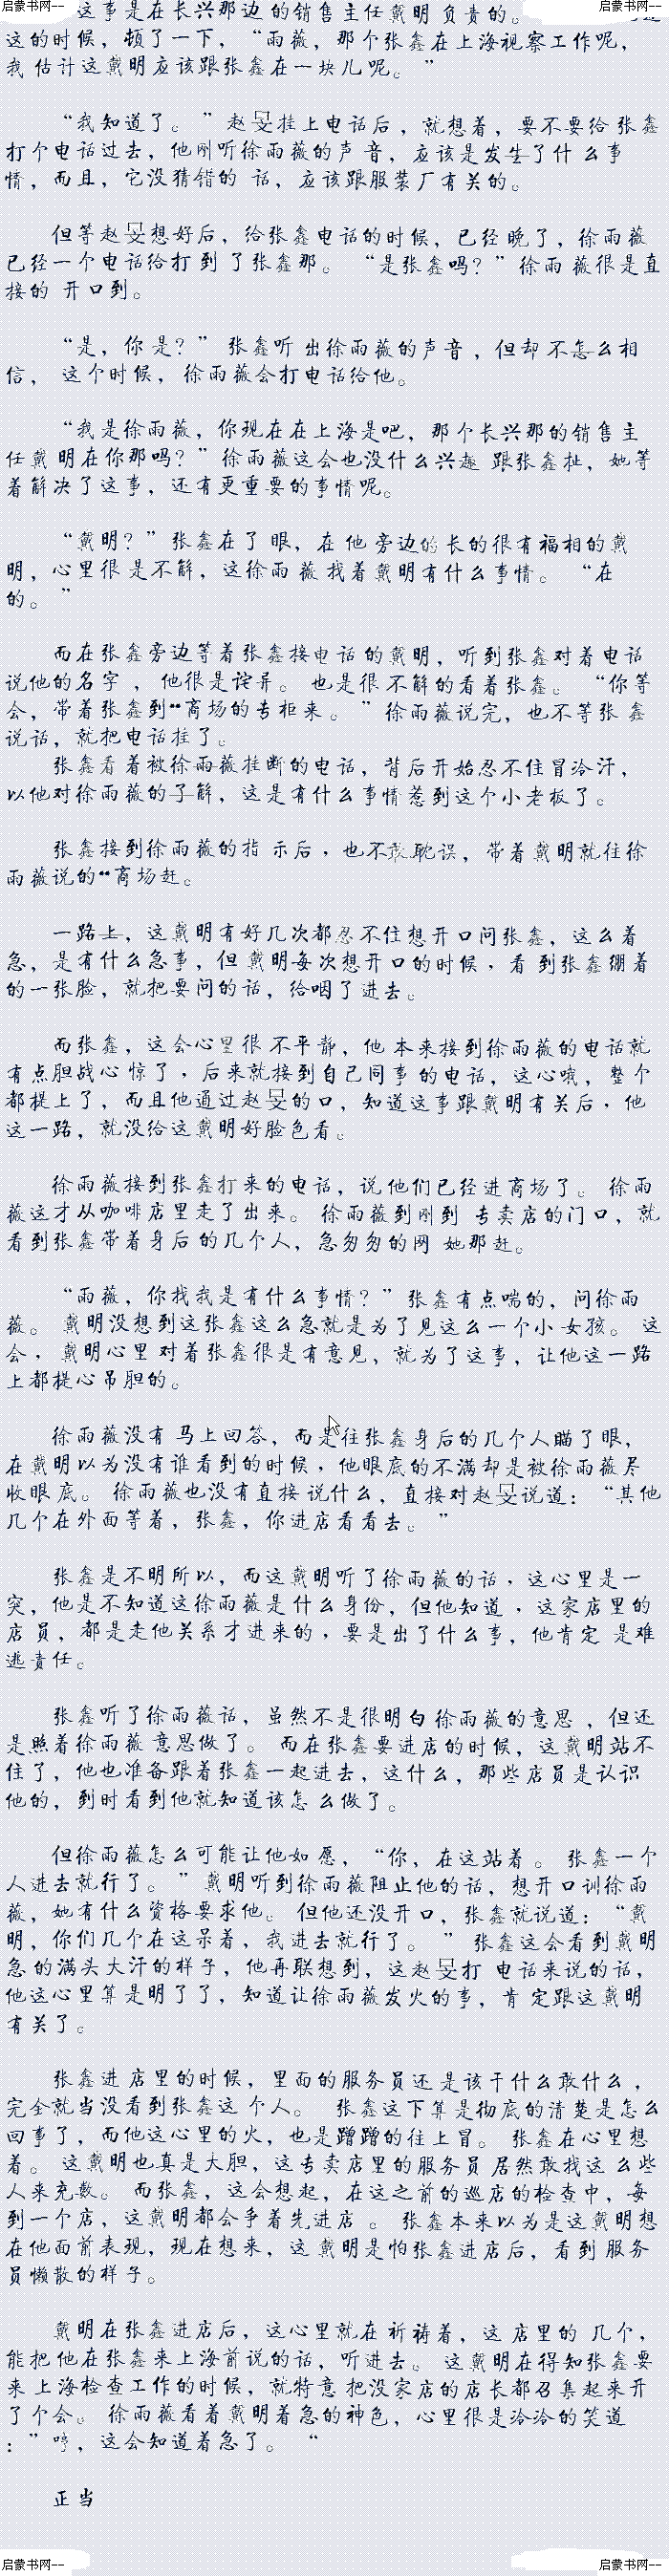 启蒙书网--
启蒙书网--
这事是在长兴那边 的销售主任戴明 负责的。
这的时候，顿了一下，“雨薇，那个张鑫在上海视察工作呢，
我 估计这戴明应该跟张鑫在一块儿呢。”
“我知道了。”赵旻挂上电话后，就想着，要不要给 张鑫
打个电话过去，他刚听徐雨薇的声 音，应该是发生了什 么事
情，而且，它没猜错的 话，应该跟服装厂有关的。
但等赵旻想好后，给张鑫电话的时候，已经晚了，徐雨薇
已经一个电话给打 到 了张鑫那。 “是张鑫吗？”徐雨 薇很是直
接的 开口到。
“是，你 是？” 张鑫听 出徐雨薇的声音 ，但却 不怎么相
信， 这个时候， 徐雨薇会打电话给他。
“我是徐雨薇，你现在在上海是吧，那个长兴那的销售 主
任戴 明在你那吗？”徐雨薇这会也没什么兴趣 跟张鑫扯，她等
着解决了这事，还有更重要的事情呢。
“戴明？” 张鑫在了 眼，在 他 旁边的 长的很有福相的戴
明，心里很 是不解，这徐雨 薇 找着 戴明有什么事情。 “在
的。”
而在张鑫旁边等着张鑫接电话 的戴明，听到张鑫对着电话
说他的名字 ，他很是诧异。 也是很 不解的看着张鑫。 “你等
会，带着张鑫到**商场的专柜来。”徐雨薇说完，也不等张 鑫
说话，就把电话挂了。
张鑫看着被徐雨薇挂断的电话，背后开始忍不住冒冷汗，
以他对徐雨薇的了解，这是有什么事情惹到这个小老板了。
张鑫接到徐雨薇的指 示后，也不敢耽误，带着戴明就往徐
雨薇说的**商场赶。
一路上，这戴明有好几次都忍不住想开口问张鑫，这么着
急，是有什么急事，但 戴明每次想开口的时候，看 到张鑫绷着
的一张脸，就把要问的话，给咽了进去。
而张鑫，这会心里很 不平静，他 本来接到徐雨薇的电话就
有点胆战心 惊了，后来就接到自己同事 的电话，这心哦，整个
都提上了，而且他通过赵旻的口，知道这事跟戴明有关后，他
这一路，就没给这戴明好脸色看。
徐雨薇接到张鑫打来的电话，说他们已经进商场了。 徐雨
薇这才从咖啡店里走了出来。 徐雨薇到刚到 专卖店的门口，就
看到张鑫带着身后 的几个人，急匆匆的网 她那赶。
“雨薇，你找我是有什么事情？” 张鑫有点喘的，问徐雨
薇。 戴明没想到这张鑫这么急就是为了见这么一个小 女孩。 这
会，戴明心里 对着张鑫很是有意见，就为了这事，让他这一路
上都提心吊胆的。
徐雨薇没有 马上回答，而是往张鑫 身后的几个人瞄了眼，
在戴明以为没有谁看到的时候，他眼底的不满却是被徐雨薇尽
收眼 底。 徐雨薇也没有直接 说什么，直接对赵旻说道：“其他
几个在外面等着，张鑫，你进店看看去。”
张鑫是不明所以，而这戴明听了徐雨薇的话，这心里是一
突，他是不知道这徐雨薇是 什么身份，但他知道，这家店里的
店员，都是走他关系才进来的，要是出了什么事，他肯定 是难
逃责任。
张鑫听了徐雨薇话，虽然不是很明白 徐雨薇的意思 ，但还
是照着徐雨薇 意思做了。 而在张鑫要进店的时候，这戴明站不
住了，他也准备跟着张鑫一起进去，这什么，那些店员是认识
他的，到时看到他就知道该怎 么做了。
但徐雨薇怎么可能让他如 愿，“你，在这站着。 张鑫一个
人进去就行了。 ” 戴明听到徐雨薇阻止他的话，想开口训徐雨
薇，她有什么资格要求他。 但他还没开口，张鑫就说道：“戴
明，你们几个在这呆着，我进去就行了。 ” 张鑫这会看到戴明
急 的满头大汗的样子，他再联想到，这赵旻打 电话来说的话，
他这心里算是明了了，知道让徐雨薇发火的事，肯 定跟这戴明
有关了。
张鑫进 店里的时候，里面的服务员还 是该干什么敢什么 ，
完全就当没看到张鑫这 个人。 张鑫这下算是彻底的清楚是怎么
回事了，而他这心里的火，也是蹭蹭的往上冒。 张鑫在心里想
着。 这戴明也真是大胆，这专卖店里的服务员 居然敢找这 么些
人来充数。 而张鑫，这会想起，在这之前的巡店的检查中，每
到一个店，这戴明都会争着先进店 。 张鑫本来以为是这戴明想
在他面前表现，现在想来，这 戴明是怕张鑫进店后，看到 服务
员懒散的样子。
戴明在张鑫进店后，这心里就在 祈祷着，这 店里的 几个，
能把 他在张鑫来上海前说的话，听进去。 这戴明在得知张鑫要
来 上海检查工作的时候，就特意 把没家店的店长都召集起来开
了个会。 徐雨薇看着戴明着急的神色，心里很是冷冷的笑道
：”哼，这会知道着急了。 “
正当
启蒙书网--
启蒙书网--